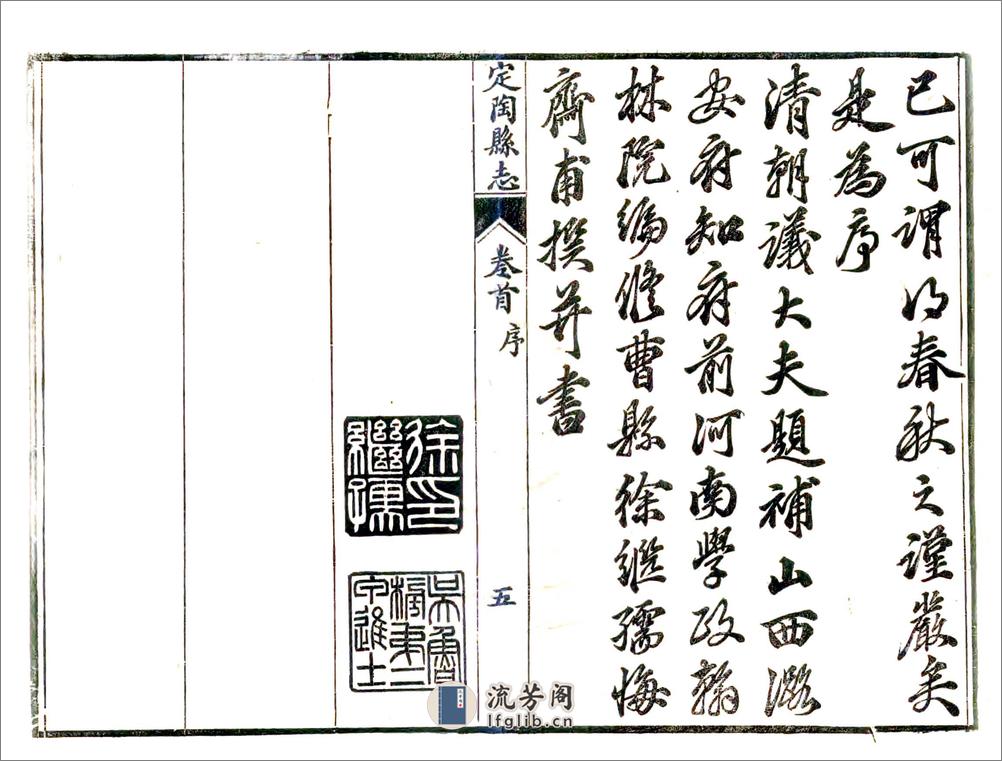 已可謂得春秋之謹嚴矣
是為序
清朝議大夫題補山西潞
安府知府前河南學政翰
林院編修曹縣徐繼孺悔
齋甫撰并書
定陶縣志 卷首 序 五
徐印
繼孺
吳魯
榜弟二
甲進士
流芳阁
lfglib.cn